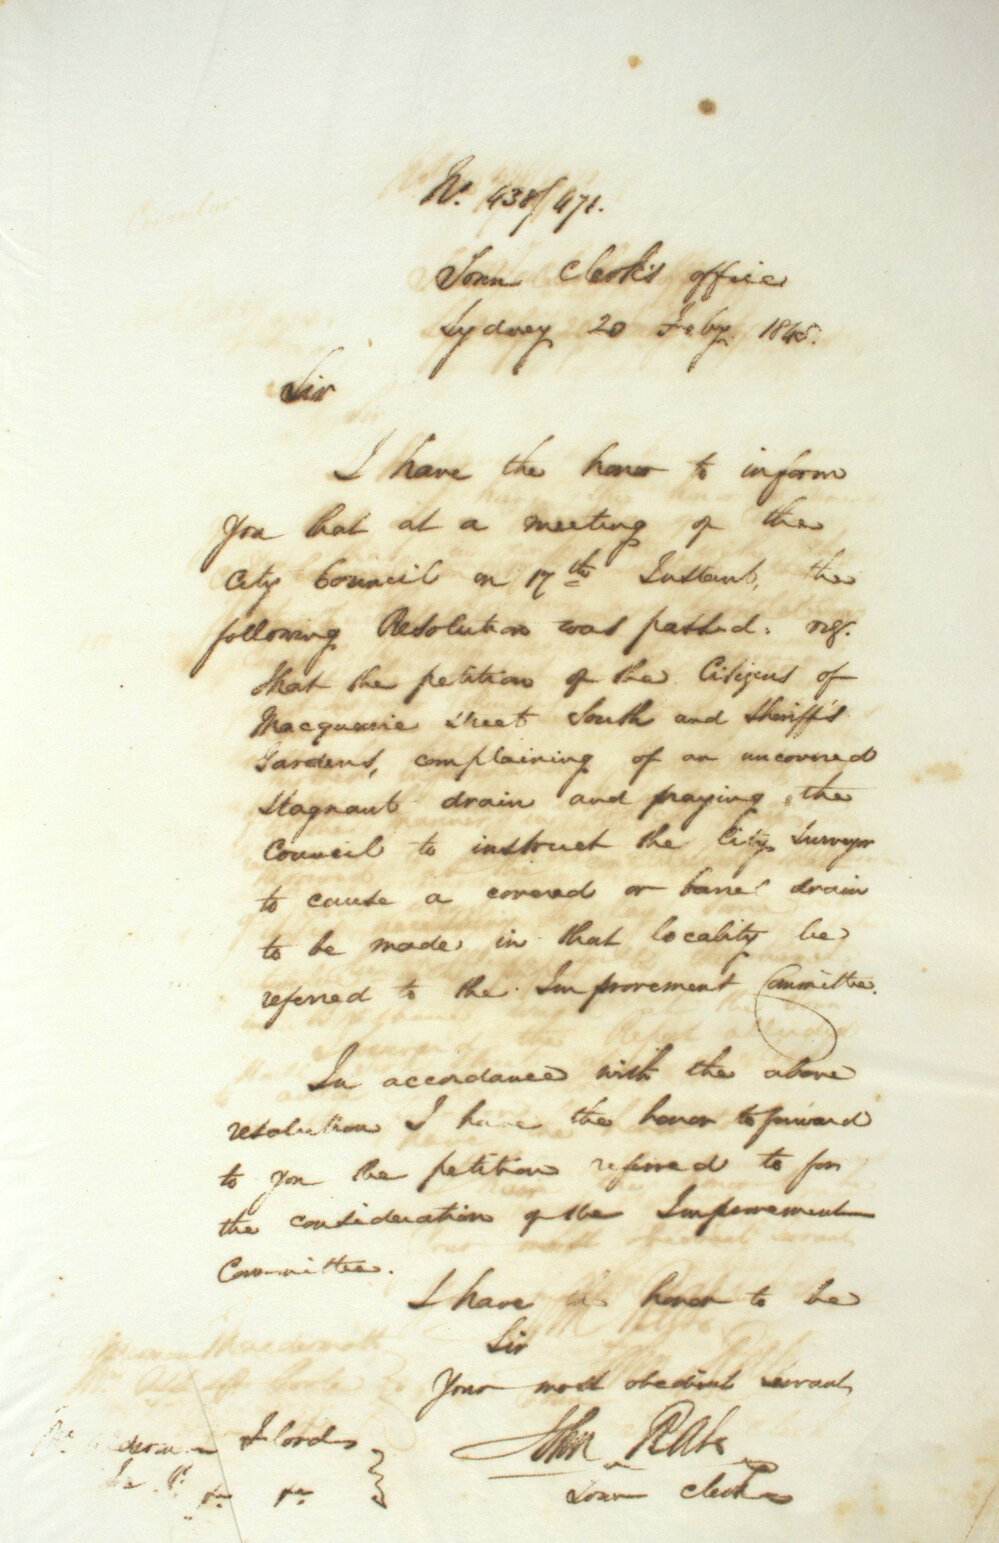 No. 438/471.
Town Clerk's office
Sydney 20 Feby. 1845.
Sir
I have the honor to inform
you that at a meeting of the
City Council on 17th Instant, the
following Resolution was passed: viz.
That the petition of the Citizens of
Macquarie Street South and Sheriff's
Gardens, complaining of an uncovered
Stagnant drain and praying the
Council to instruct the City Surveyor
to cause a covered or barrel drain
to be made in that locality be
referred to the Improvement Committee.
In accordance with the above
resolution I have the honor to forward
to you the petition referred to for
the consideration of the Improvement
Committee.
I have the honor to be
Sir
Your most obedient servant
John Rae
Town Clerk
Alderman Flood